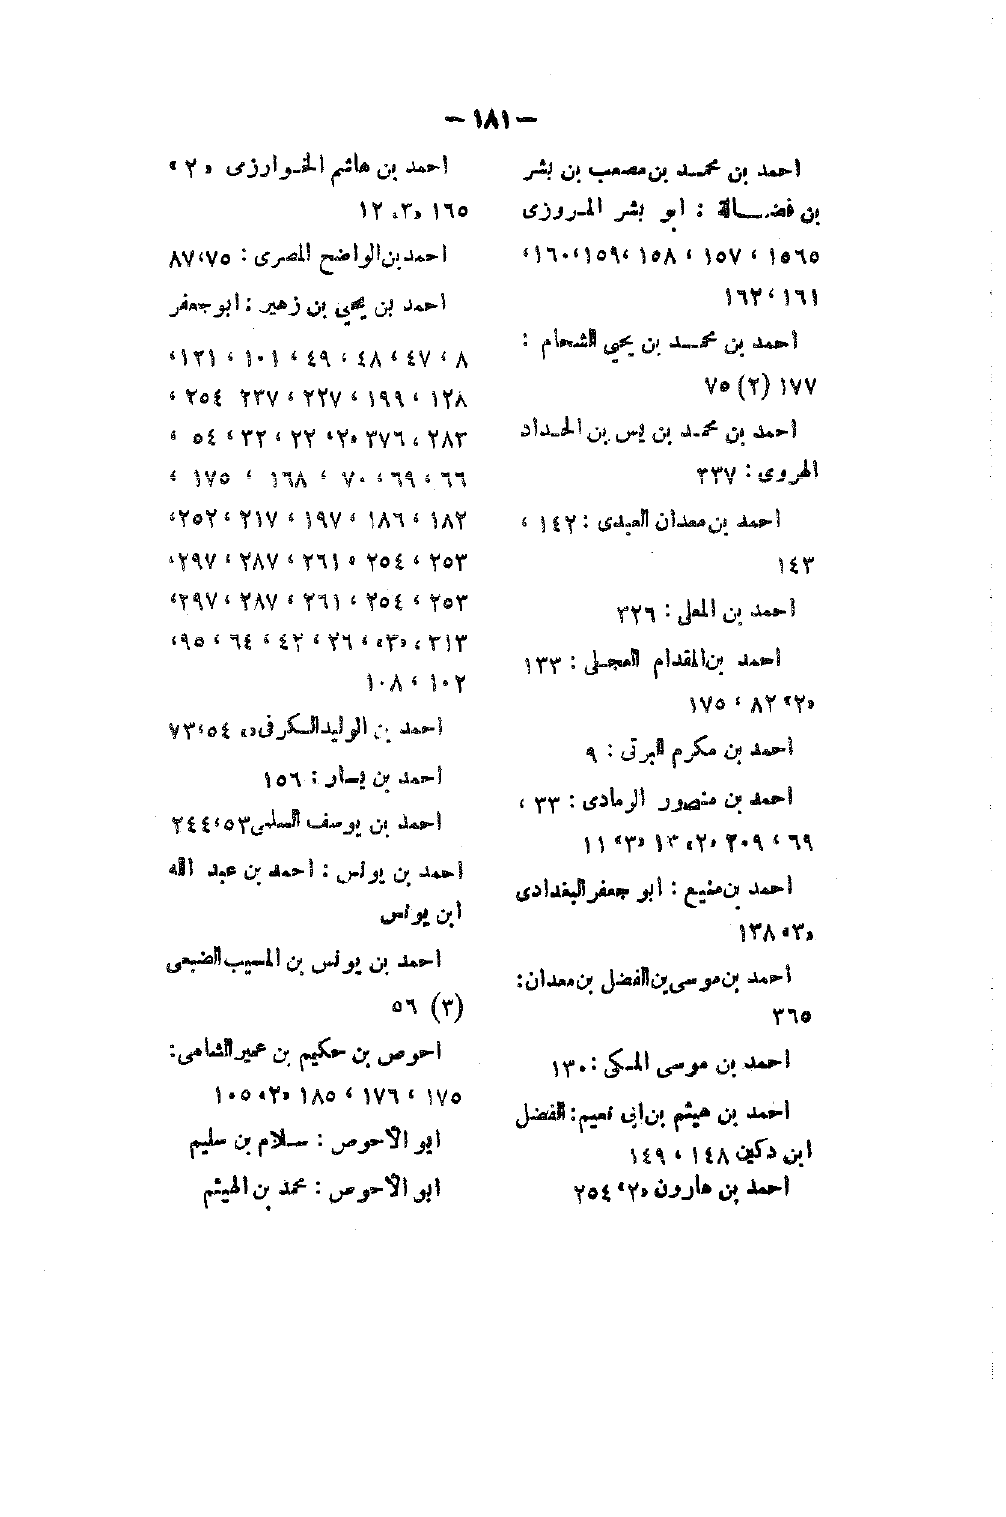 — ١٨١ —
احمد بن محمد بن مصعب بن بشر
بن فضالة : ابو بشر المروزى
١٥٦٥ ، ١٥٧ ، ١٥٨ ،١٥٩،١٦٠،
١٦١ ،١٦٢
احمد بن محمد بن يحيى الشحام :
١٧٧ (٢) ٧٥
احمد بن محمد بن يس بن الحداد
الهروى : ٣٣٧
احمد بن معدان العبدى : ١٤٢ ،
١٤٣
احمد بن المعلى : ٣٢٦
احمد بن المقدام العجلى : ١٣٣
«٢» ٨٢ ، ١٧٥
احمد بن مكرم البرتى : ٩
احمد بن منصور الرمادى : ٣٣ ،
٦٩ ، ٢٠٩ «٢» ١٣ «٣» ١١
احمد بن منيع : ابو جعفر البغدادى
«٣» ١٣٨
احمد بن موسى بن الفضل بن معدان :
٣٦٥
احمد بن موسى المكى : ١٣٠
احمد بن هيثم بن ابى نعيم : الفضل
ابن دكين ١٤٨ ، ١٤٩
احمد بن هارون «٢» ٢٥٤
احمد بن هاشم الخوارزى «٢»
١٦٥ «٣» ١٢
احمد بن الواضح المصرى : ٧٥،٨٧
احمد بن يحيى بن زهير : ابو جعفر
٨ ، ٤٧ ، ٤٨ ، ٤٩ ، ١٠١ ، ١٢١،
١٢٨ ، ١٩٩ ، ٢٢٧ ، ٢٣٧ ٢٥٤ ،
٢٨٣ ، ٣٧٦ «٢» ٢٢ ، ٣٢ ، ٥٤ ،
٦٦ ، ٦٩ ، ٧٠ ، ١٦٨ ، ١٧٥ ،
١٨٢ ، ١٨٦ ، ١٩٧ ، ٢١٧ ، ٢٥٢،
٢٥٣ ، ٢٥٤ ، ٢٦١ ، ٢٨٧ ، ٢٩٧،
٢٥٣ ، ٢٥٤ ، ٢٦١ ، ٢٨٧ ، ٢٩٧،
٣١٣ ، «٣» ، ٢٦ ، ٤٢ ، ٦٤ ، ٩٥،
١٠٢ ، ١٠٨
احمد بن الوليد الكرفى«» ٥٤،٧٣
احمد بن يسار : ١٥٦
احمد بن يوسف السلمى ٥٣،٢٤٤
احمد بن يونس : احمد بن عبد الله
ابن يونس
احمد بن يونس بن المسيب الضبعى
(٣) ٥٦
احوص بن حكيم بن عمير الشامى :
١٧٥ ، ١٧٦ ، ١٨٥ «٢» ١٠٥
ابو الأحوص : سلام بن سليم
ابو الأحوص : محمد بن الهيثم